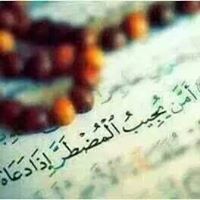 أَمَّن يُجِيبُ الْمُضْطَرَّ إِذَا دَعَاهُ